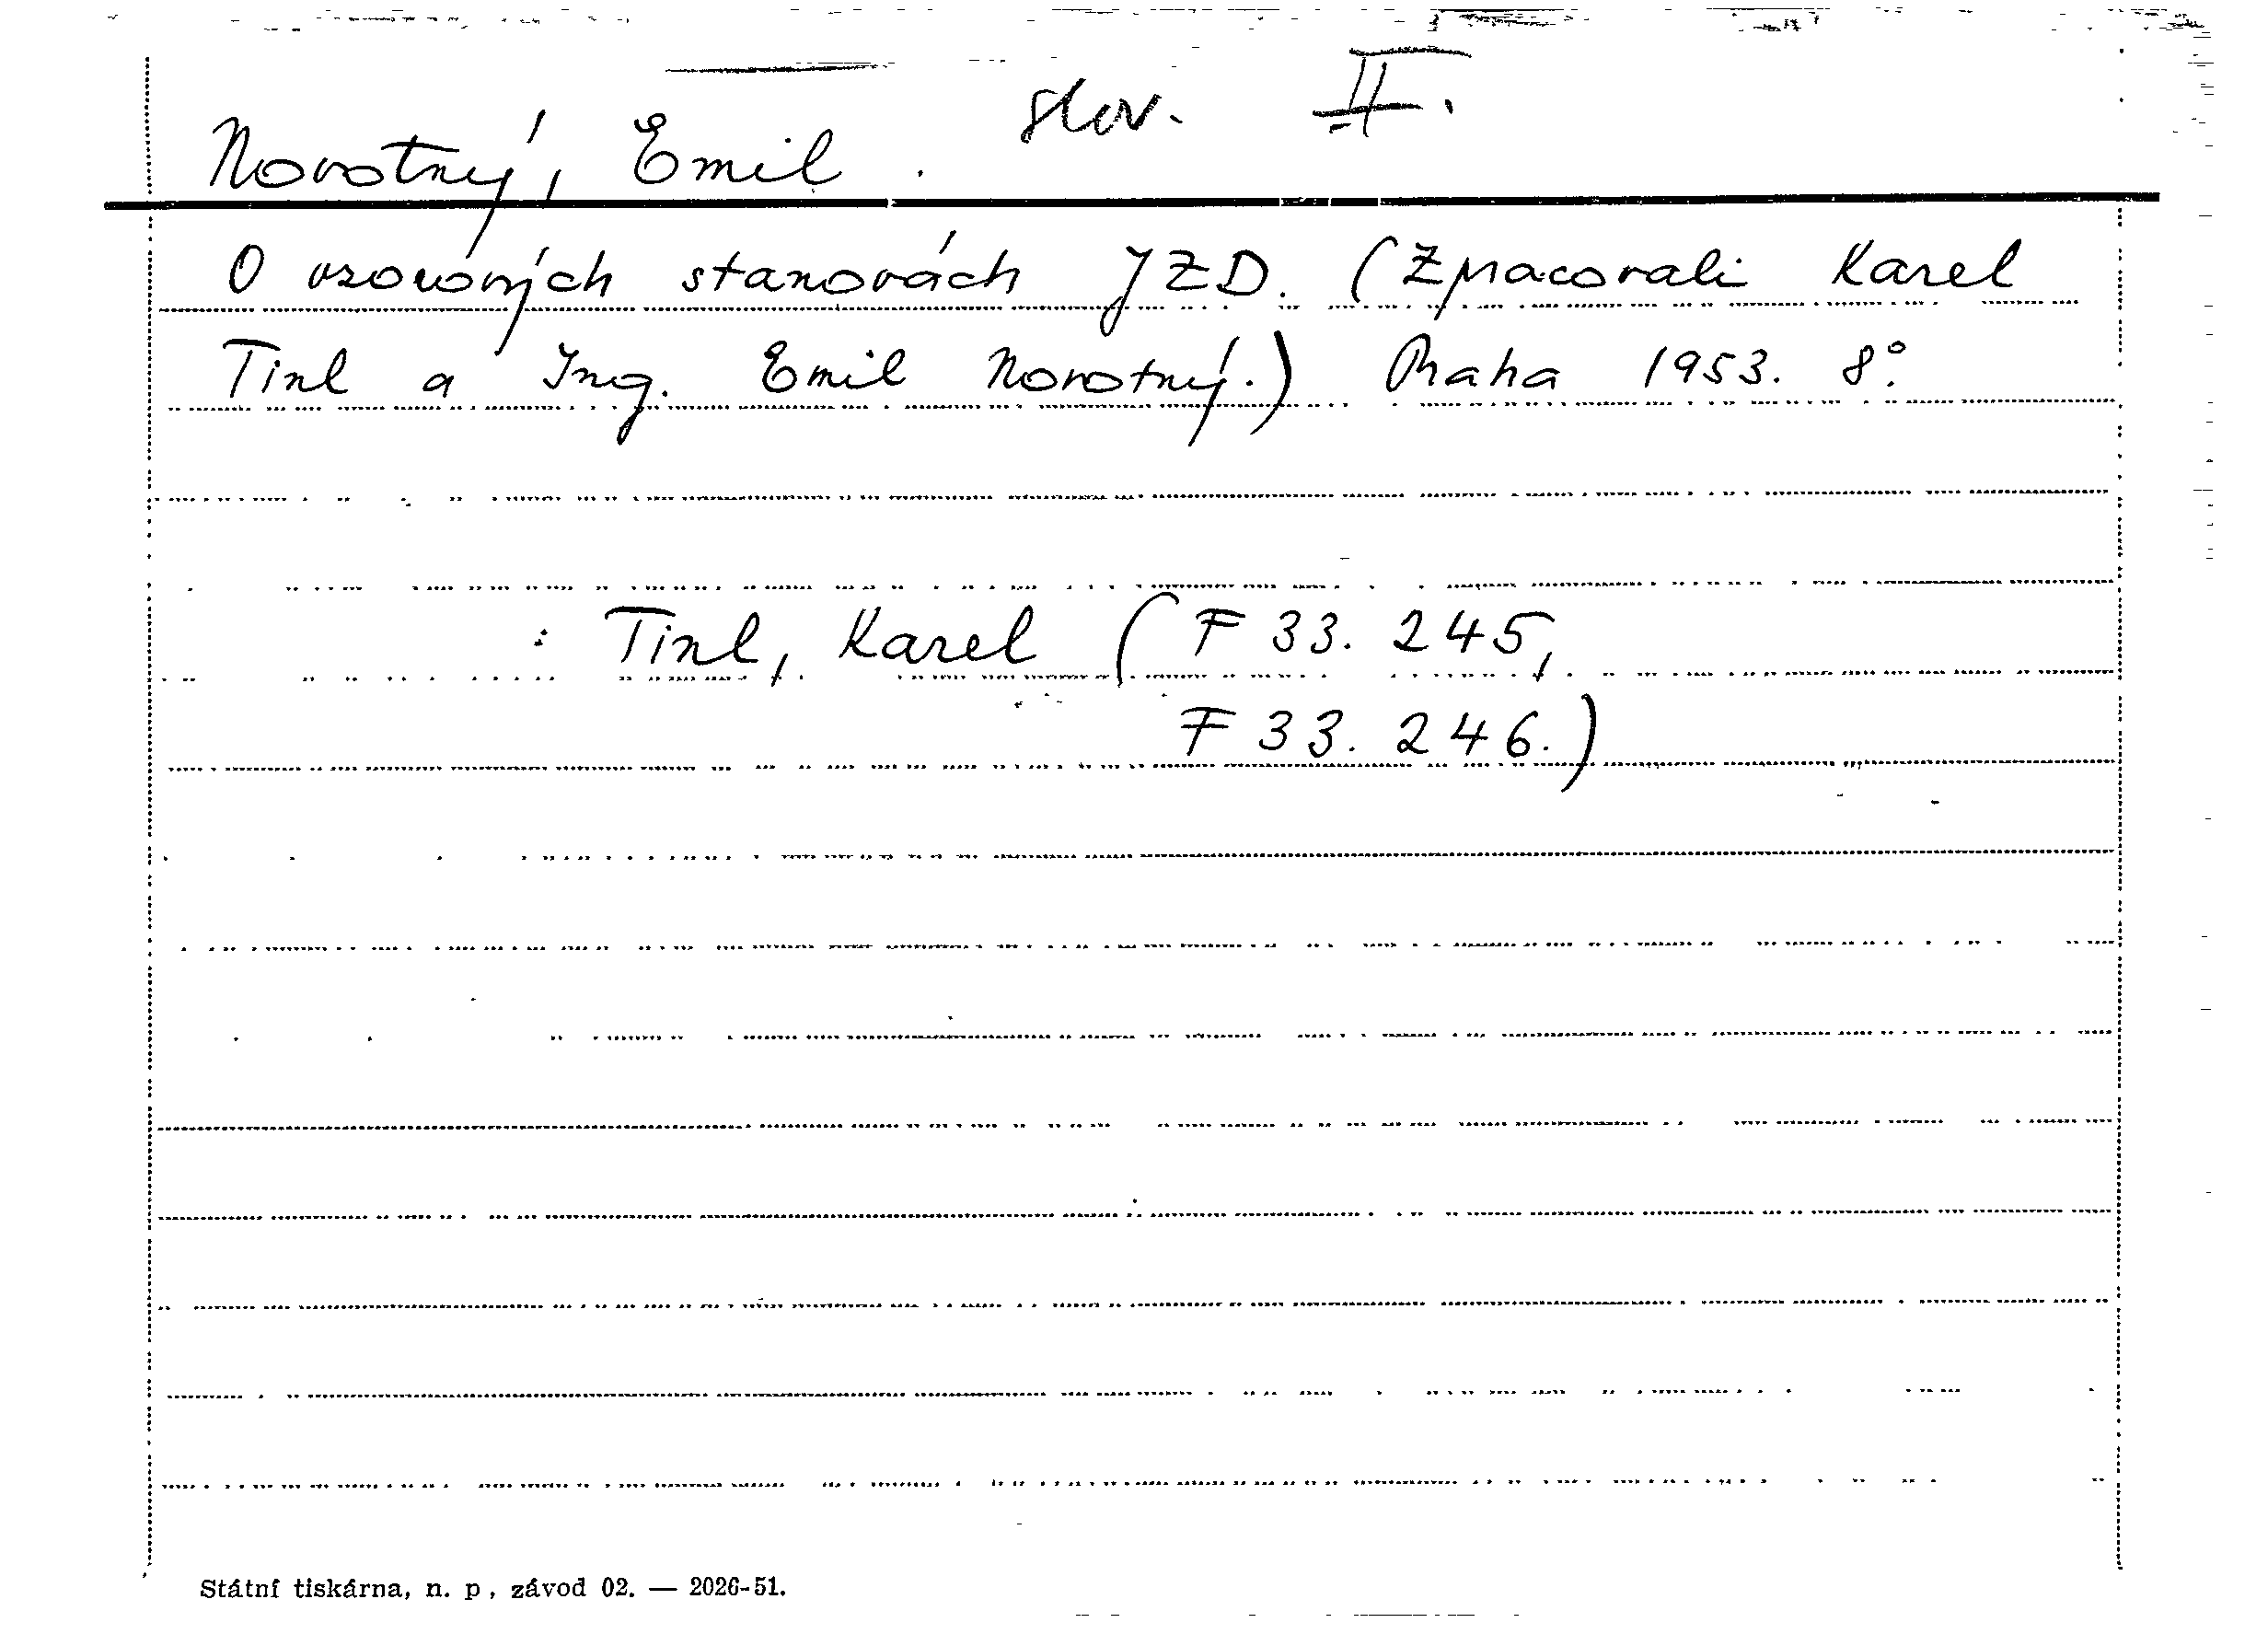 slov. II.
Novotný, Emil.
O vzorových stanovách JZD. (Zpracovali Karel
Tinl a Ing. Emil Novotný.) Praha 1953. 8°.
: Tinl, Karel (F 33. 245,
F 33. 246.)
Státní tiskárna, n. p., závod 02. — 2026-51.